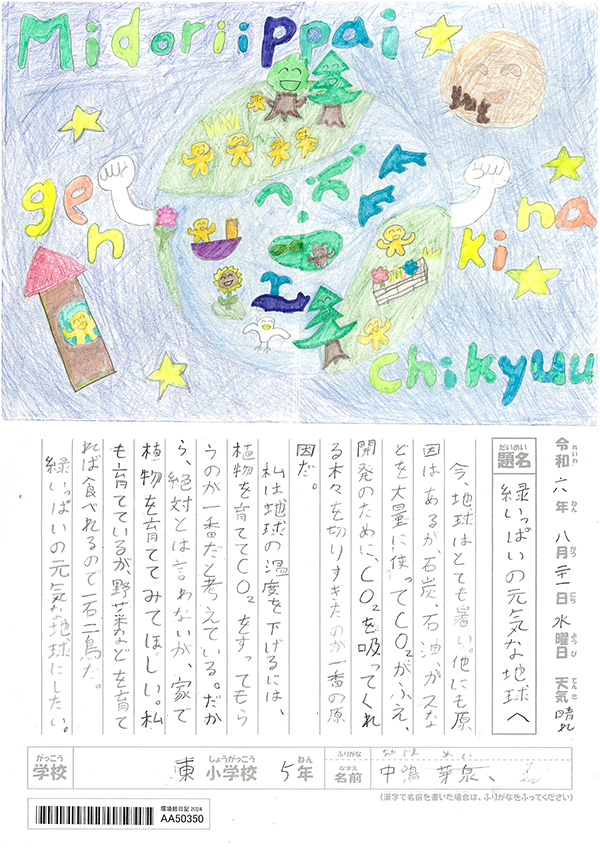 Midoriippai
gen
kina
chikyuu
令和六年八月二十一日水曜日 天気晴れ
れいわ ねん がつ にち ようび てんき
だいめい
題名 緑いっぱいの元気な地球へ
今、地球はとても暑い。他にも原
因はあるが、石炭、石油、ガスな
どを大量に使ってCO₂がふえ、
開発のために、CO₂を吸ってくれ
る木々を切りすぎたのが一番の原
因だ。
私は地球の温度を下げるには、
植物を育ててCO₂をすってもら
うのが一番だと考えている。だか
ら、絶対とは言わないが、家で
植物を育ててみてほしい。私
も育てているが、野菜などを育て
れば食べれるので一石二鳥だ。
緑いっぱいの元気な地球にしたい。
がっこう
学校
しょうがっこう ねん
東小学校 5年
ふりがな なかじま めい
なまえ
名前 中嶋 芽泉
(漢字で名前を書いた場合は、ふりがなをふってください)
環境絵日記 2024
AA50350